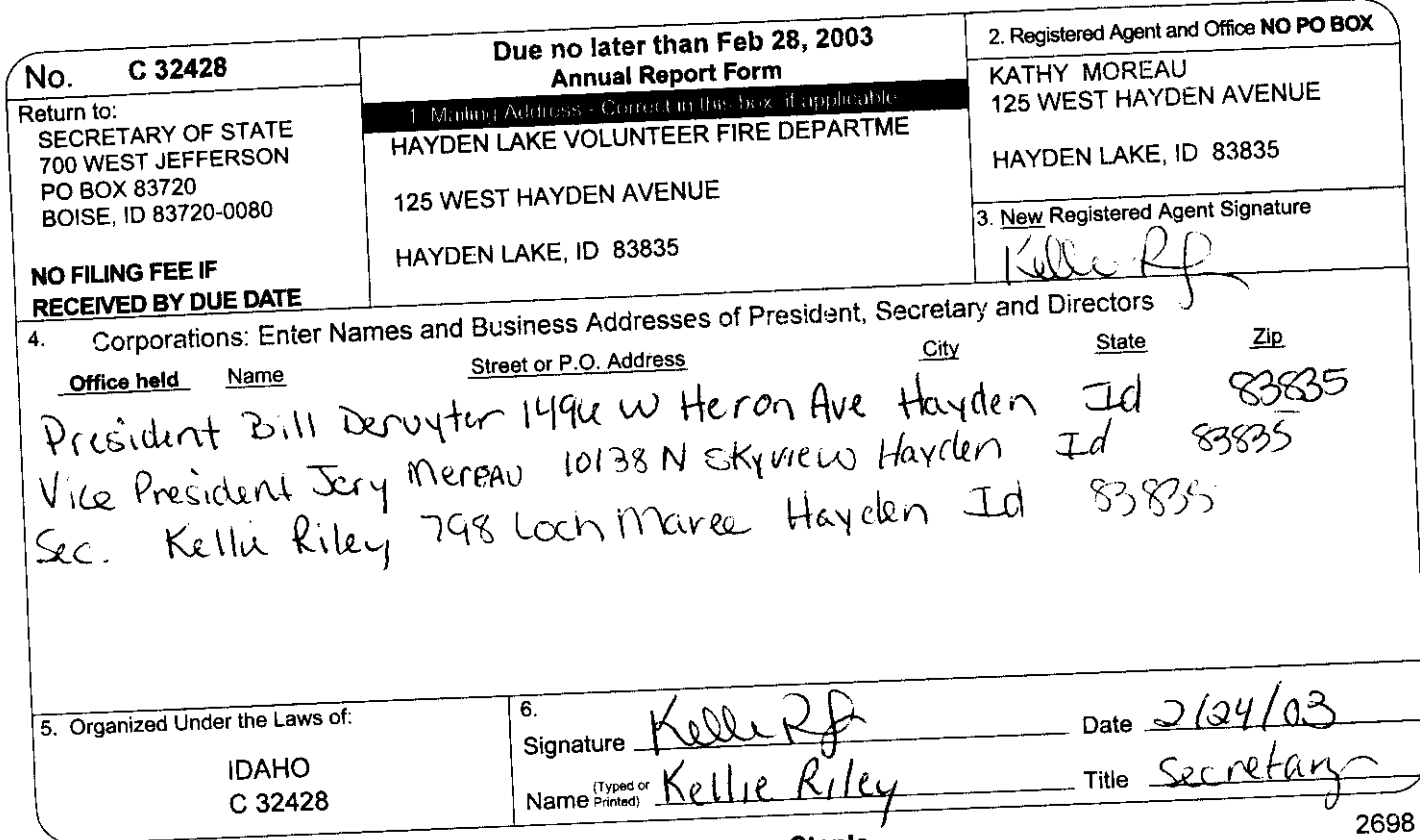 No. C 32428
Return to:
SECRETARY OF STATE
700 WEST JEFFERSON
PO BOX 83720
BOISE, ID 83720-0080
NO FILING FEE IF
RECEIVED BY DUE DATE
Due no later than Feb 28, 2003
Annual Report Form
1. Mailing Address - Correct in this box, if applicable
HAYDEN LAKE VOLUNTEER FIRE DEPARTME
125 WEST HAYDEN AVENUE
HAYDEN LAKE, ID 83835
2. Registered Agent and Office NO PO BOX
KATHY MOREAU
125 WEST HAYDEN AVENUE
HAYDEN LAKE, ID 83835
3. New Registered Agent Signature
4. Corporations: Enter Names and Business Addresses of President, Secretary and Directors
Office held Name Street or P.O. Address City State Zip
President Bill Deruyter W Heron Ave Hayden Id 83835
Vice President Jery Mereau 10138 N Skyview Hayden Id 83835
Sec. Kellie Riley 798 Loch Maree Hayden Id 83835
5. Organized Under the Laws of:
IDAHO
C 32428
6.
Signature
Date 2/24/03
Name (Typed or Printed) Kellie Riley
Title Secretary
2698